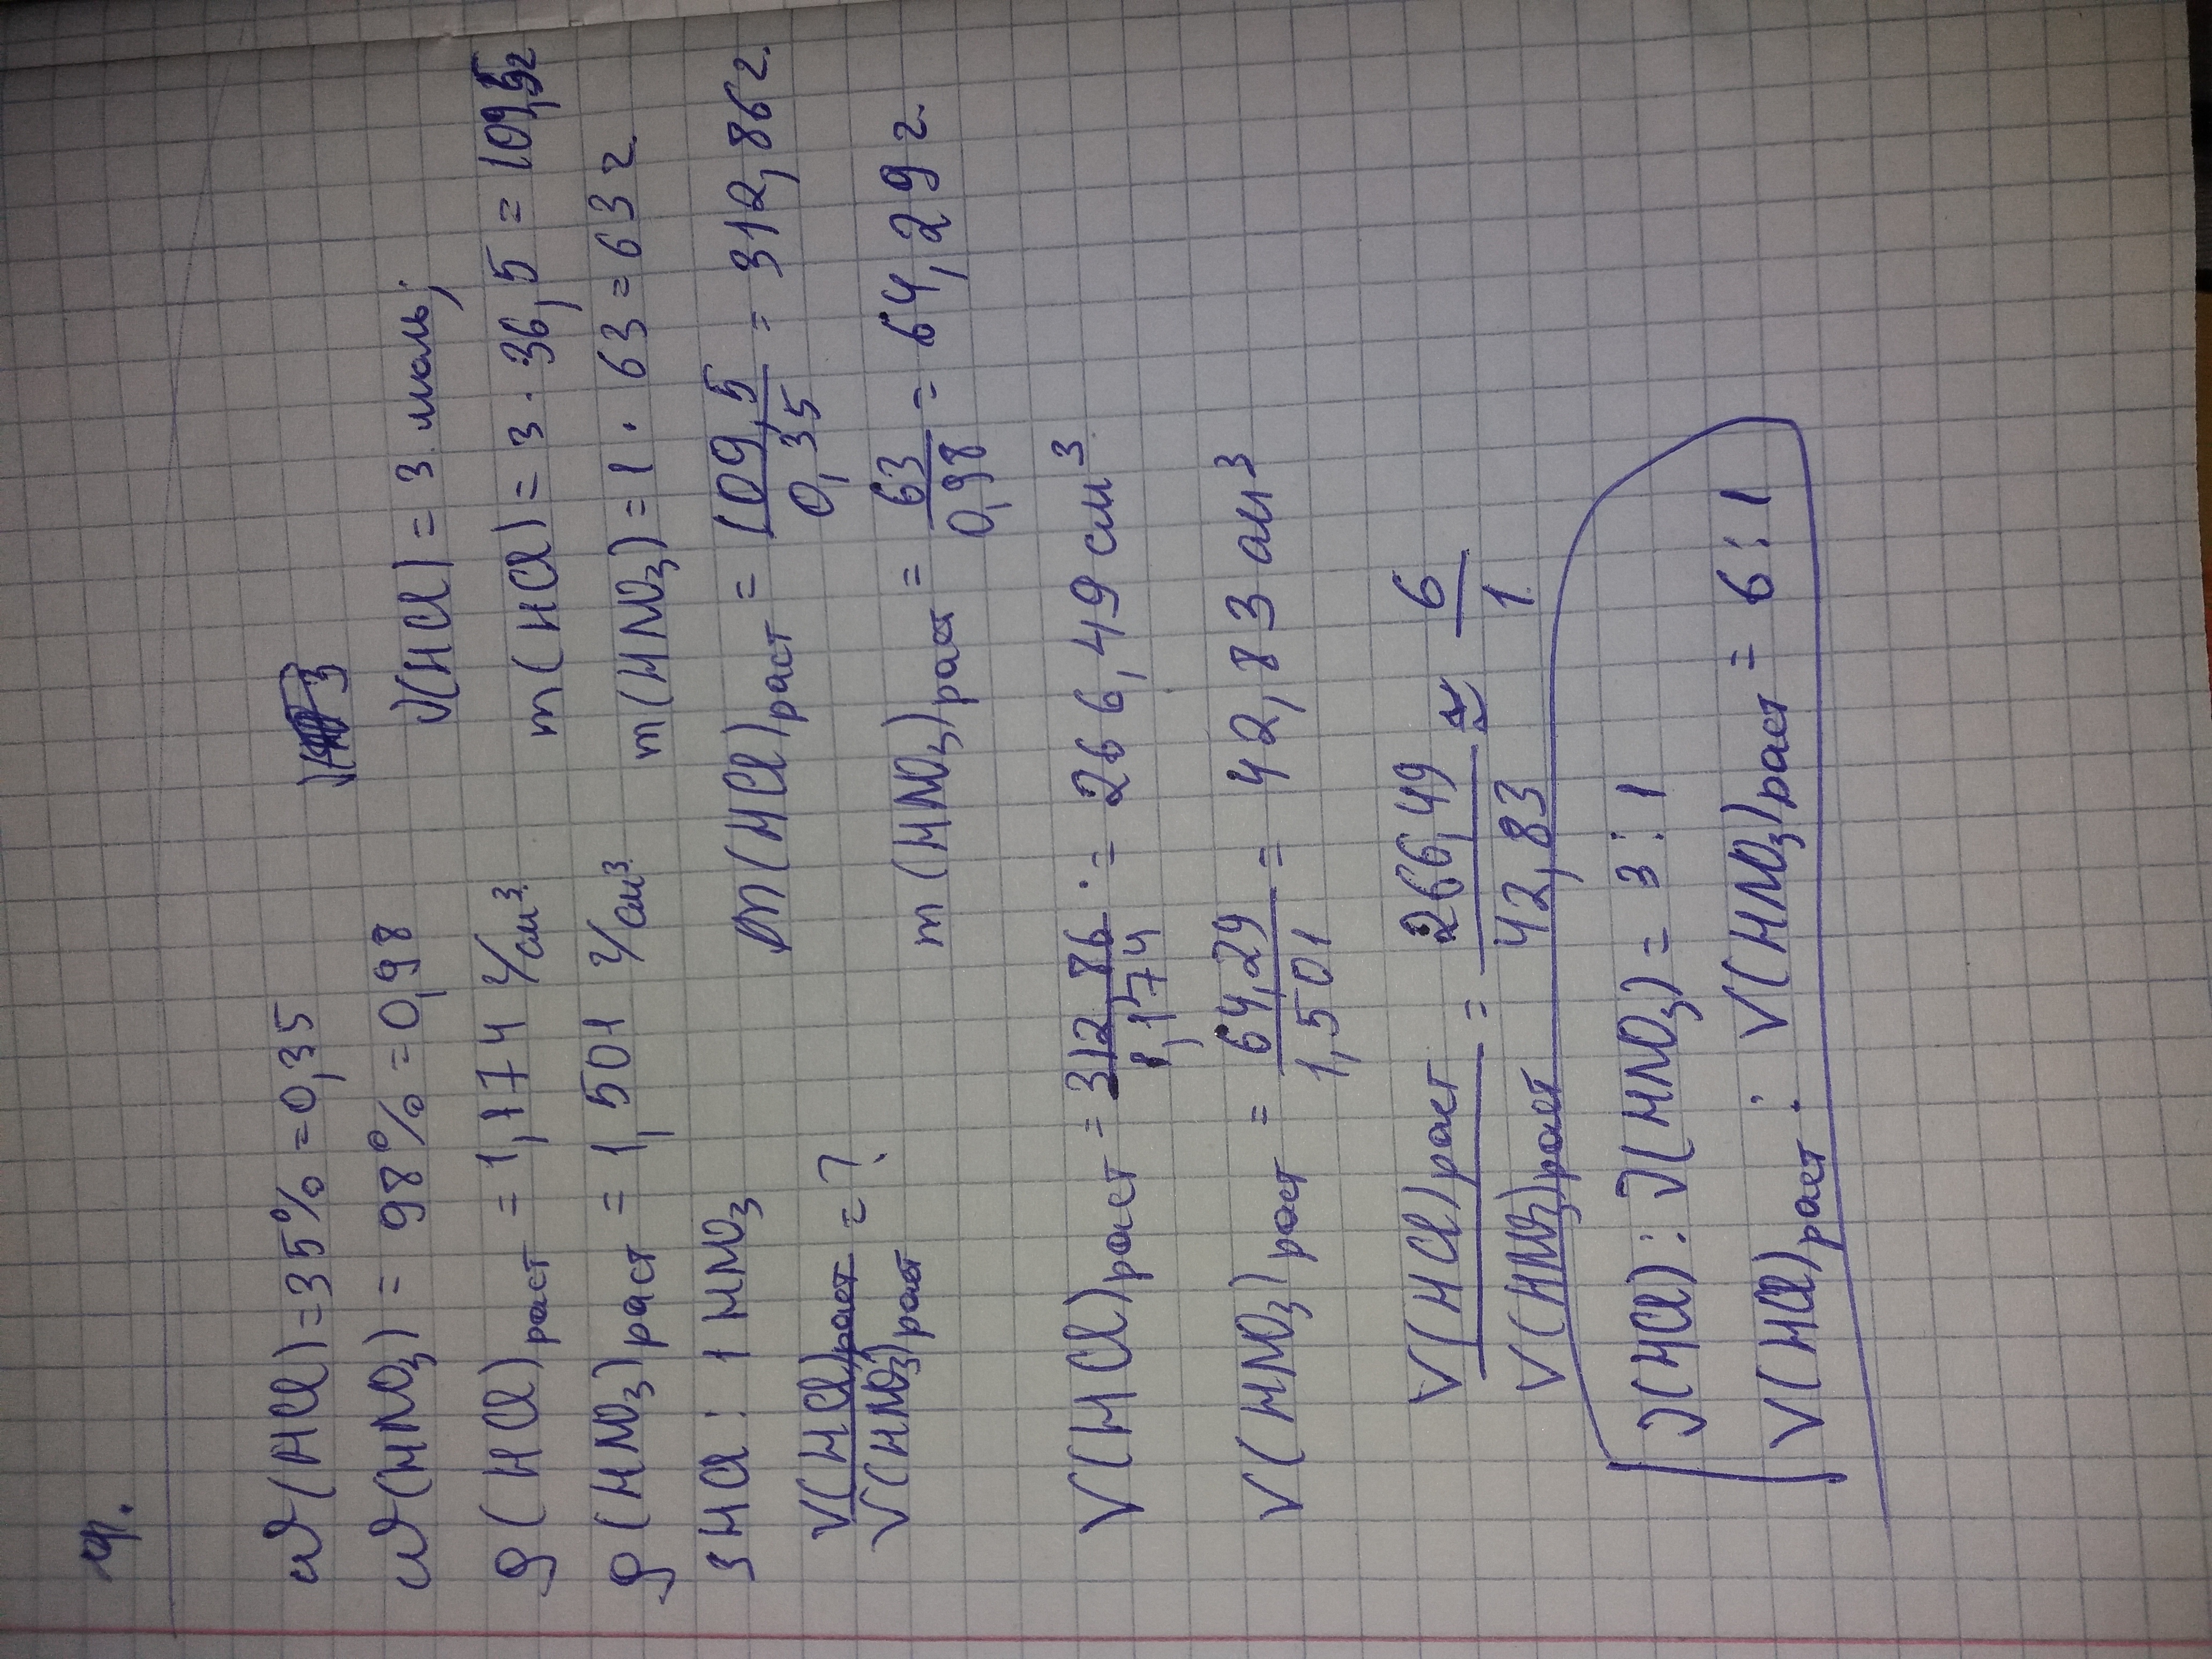 ω(HCl)=35%=0,35
ω(HNO₃) = 98%=0,98
ρ(HCl)раст = 1,174 г/см³
ρ(HNO₃)раст = 1,501 г/см³
3HCl : 1HNO₃
V(HCl)раст / V(HNO₃)раст = ?
3
ν(HCl) = 3 моль;
m(HCl) = 3 · 36,5 = 109,5г
m(HNO₃) = 1 · 63 = 63 г.
m(HCl)раст = 109,5 / 0,35 = 312,86 г.
m(HNO₃)раст = 63 / 0,98 = 64,29 г.
V(HCl)раст = 312,86 / 1,174 = 266,49 см³
V(HNO₃)раст = 64,29 / 1,501 = 42,83 см³
V(HCl)раст / V(HNO₃)раст = 266,49 / 42,83 ≈ 6 / 1
ν(HCl) : ν(HNO₃) = 3 : 1
V(HCl)раст : V(HNO₃)раст = 6 : 1